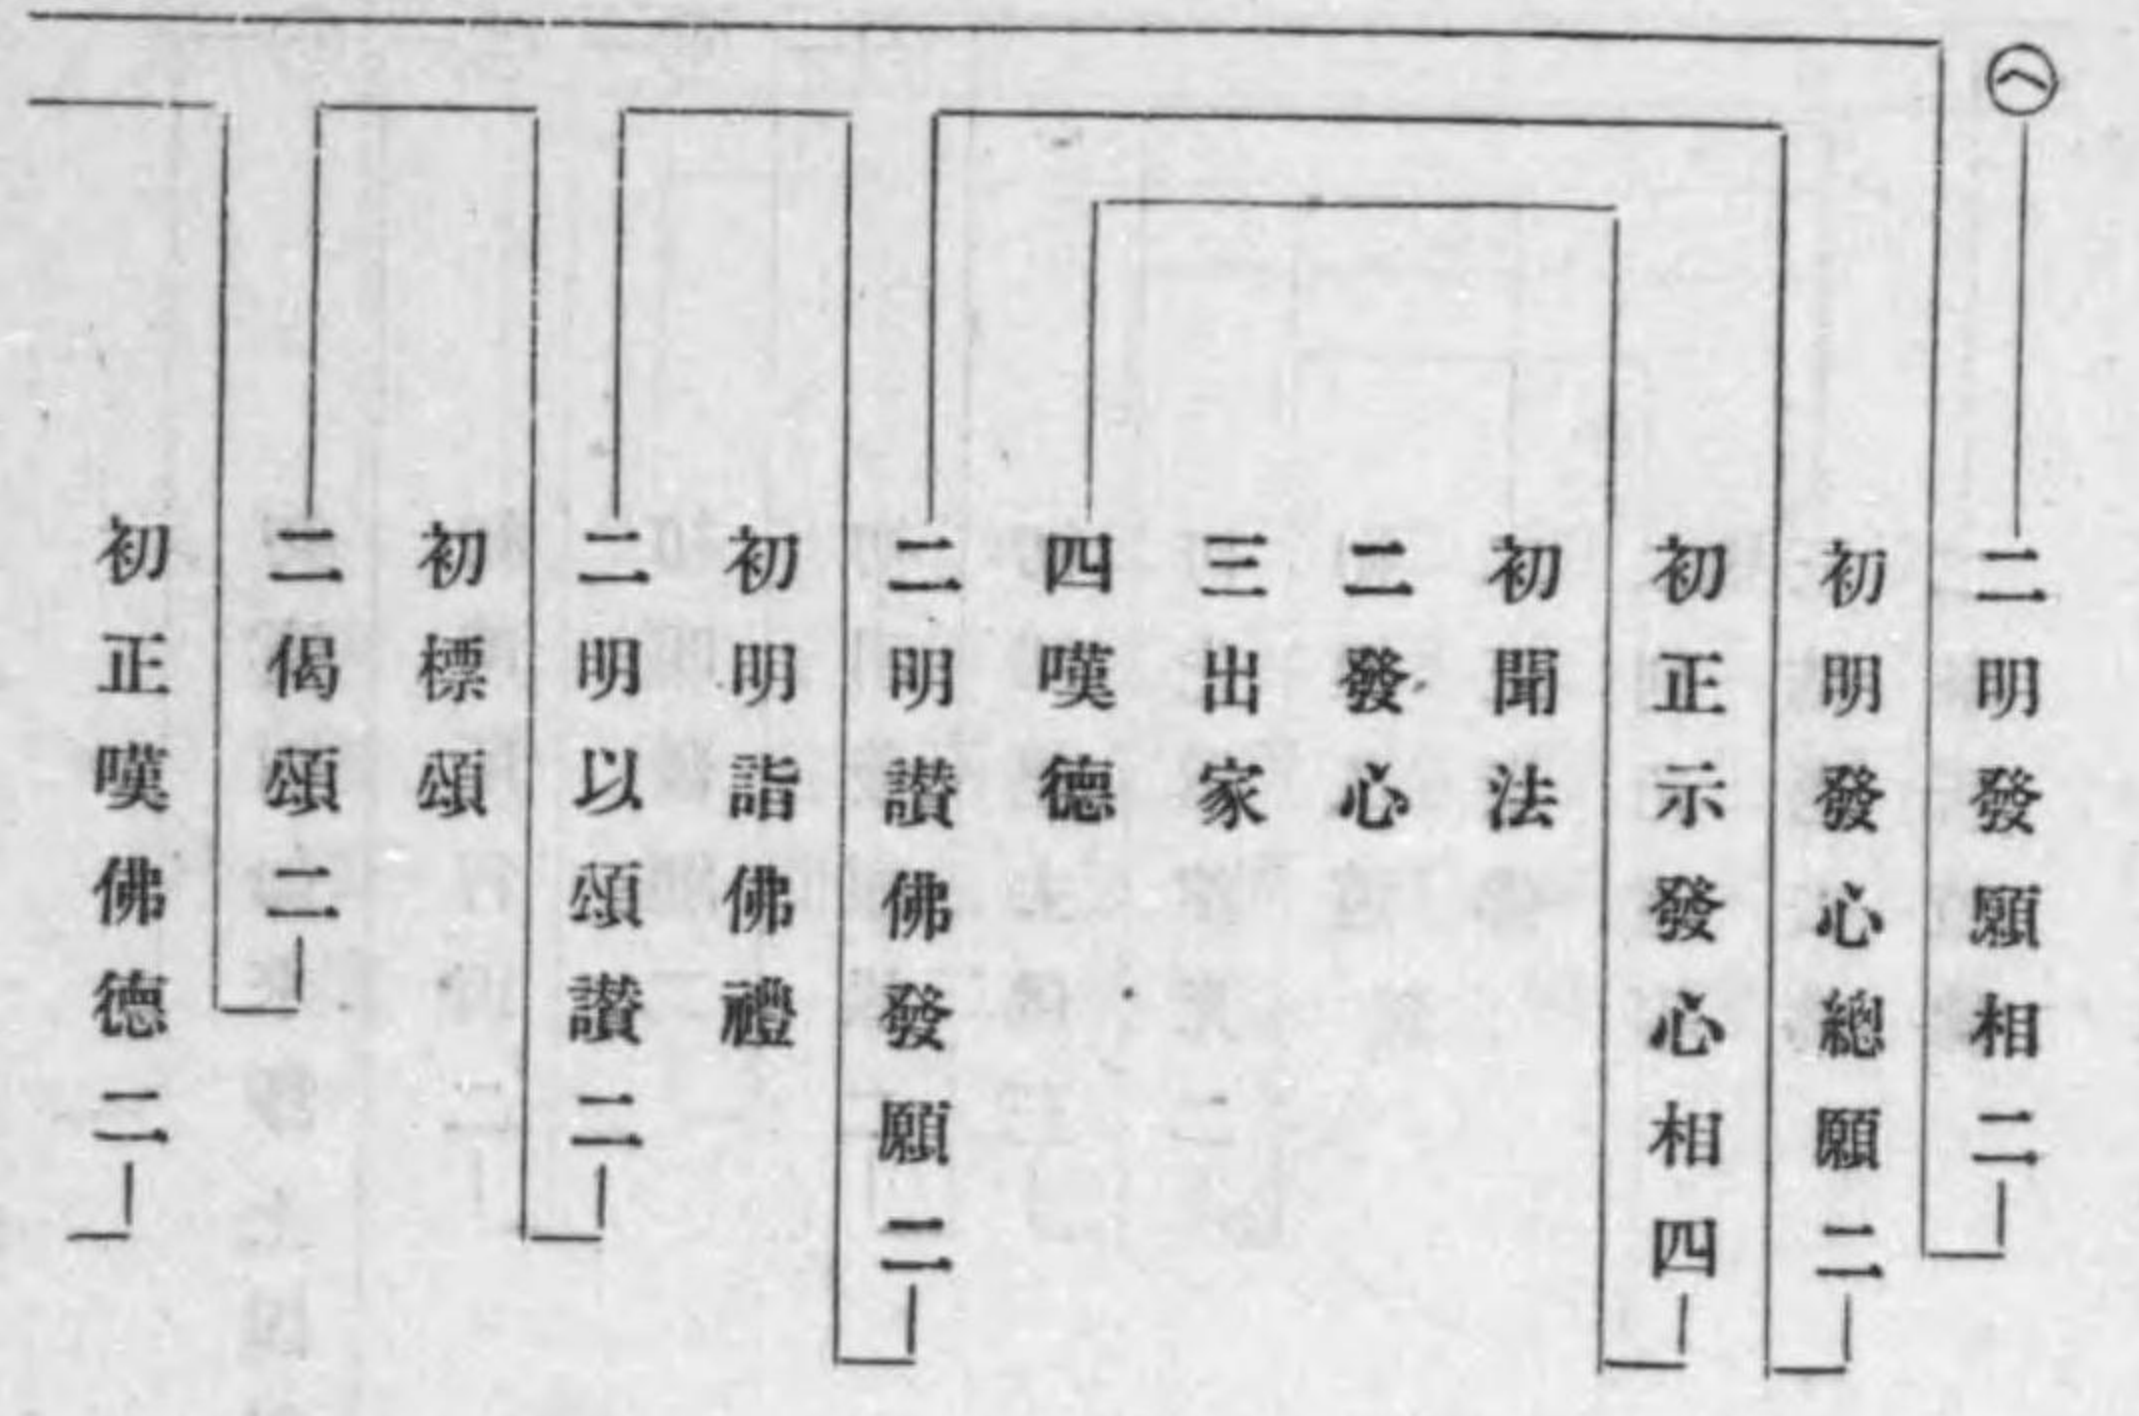 ㋬
二明發願相二
初明發心總願二
初正示發心相四
初聞法
二發心
三出家
四嘆德
二明讃佛發願二
初明詣佛禮
二明以頌讃二
初標頌
二偈頌二
初正嘆佛德二